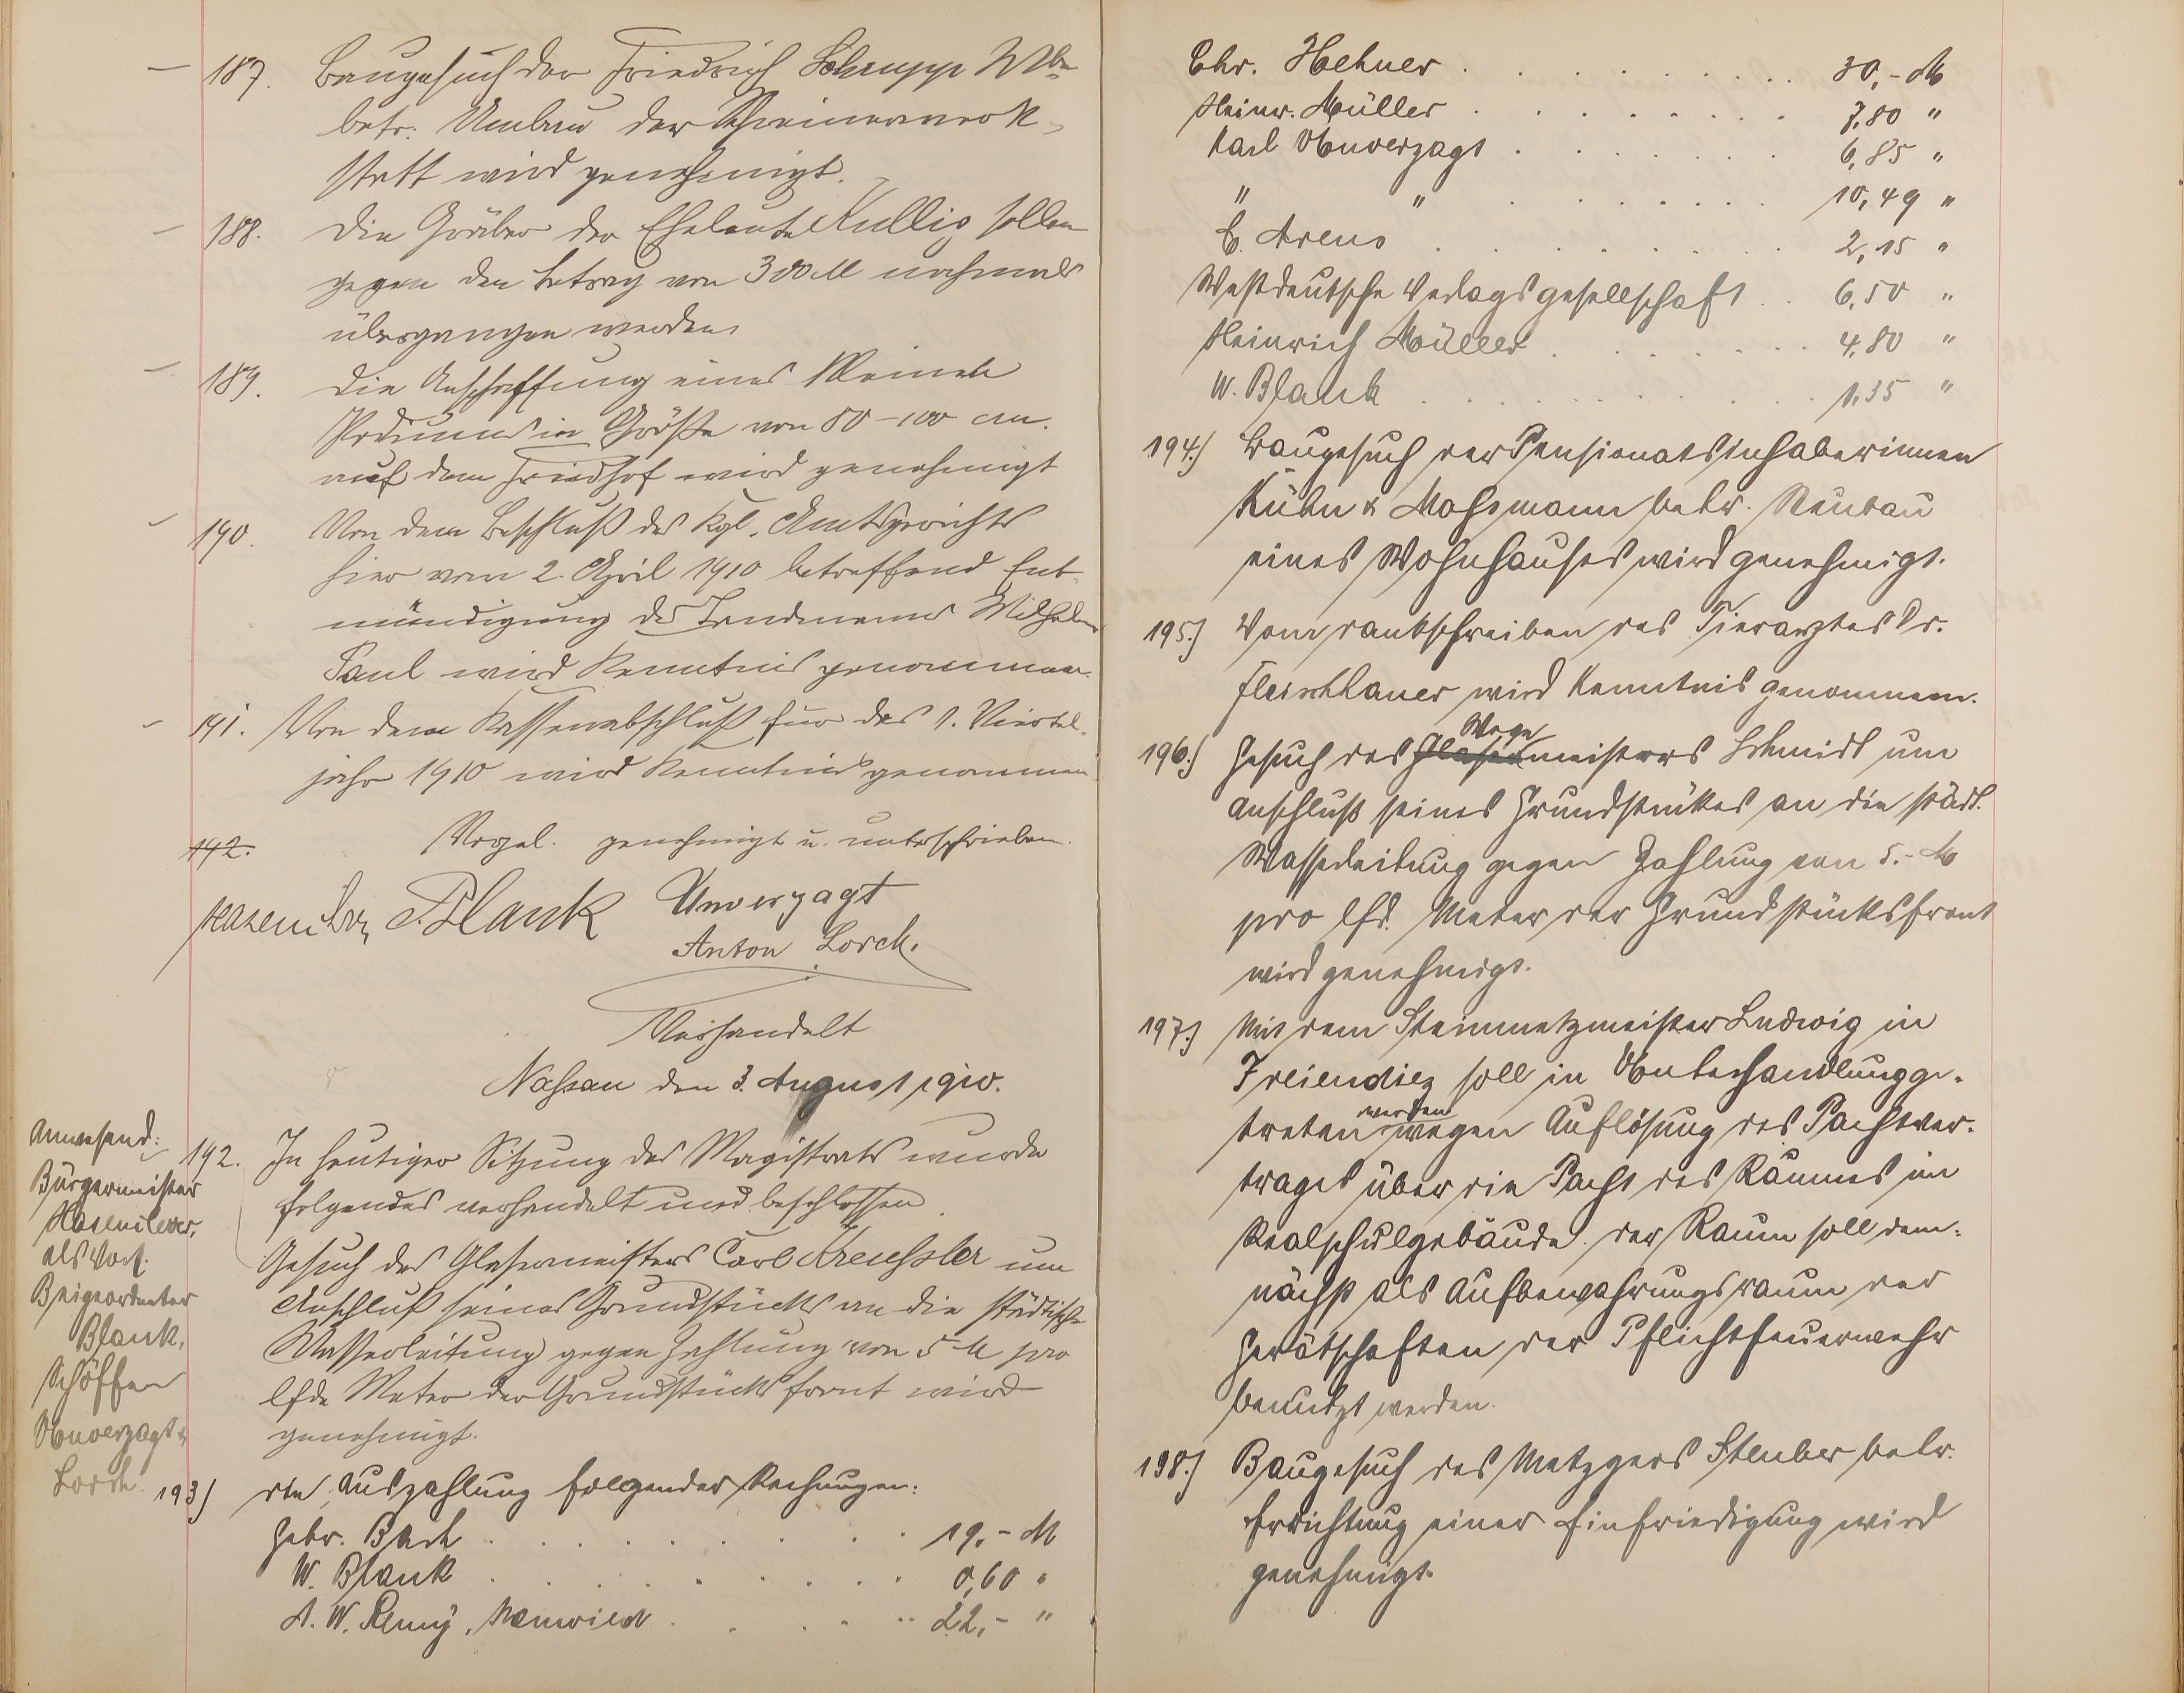 187. Baugesuch der Friedrich Schrupp Wwe
betr. Umbau der Schreinerwerk-
statt wird genehmigt.
188. Die Gräber der Eheleute Kullig sollen
gegen den Betrag von 300 M nochmals
übergangen werden.
189. Die Anschaffung eines kleinen
Podiums in Größe von 80–100 cm.
auf dem Friedhof wird genehmigt
190. Von dem Beschluß des Kgl. Amtsgerichts
hier vom 2. April 1910 betreffend Ent-
mündigung des Landmanns Wilhelm
Paul wird Kenntnis genommen.
191. Von dem Kassenabschluß für das 1. Viertel-
jahr 1910 wird Kenntnis genommen
192. Vorgel. genehmigt u. unterschrieben.
Hasenclever Blank Unverzagt
Anton Lorch.
Verhandelt
Nassau den 3. August 1910.
Anwesend:
Bürgermeister
Hasenclever,
als Vors.
Beigeordneter
Blank,
Schöffen
Unverzagt &
Lorch.
192. In heutiger Sitzung des Magistrats wurde
folgendes verhandelt und beschlossen.
Gesuch des Glasermeisters Carl Kreussler um
Anschluß seines Grundstücks an die städtische
Wasserleitung gegen Zahlung von 5 M pro
lfde Meter der Grundstücksfront wird
genehmigt.
193) die Auszahlung folgender Rechnungen:
Gebr. Bach . . . 19,- M
W. Blank . . . 0,60 "
A. W. Remy, Neuwied . . . 22,- "
Chr. Hehner . . . 30,- M
Heinr. Müller . . . 7,80 "
Karl Unverzagt . . . 6,85 "
" " . . . 10,49 "
C. Arens . . . 2,15 "
Westdeutsche Verlagsgesellschaft . . 6,50 "
Heinrich Müller . . . 4,80 "
W. Blank . . . 1,35 "
194.) Baugesuch der Pensionatsinhaberinnen
Kühn & Massmann betr. Neubau
eines Wohnhauses wird genehmigt.
195.) Vom Dankschreiben des Tierarztes Dr.
Fleischhauer wird Kenntnis genommen.
Wege
196.) Gesuch des Glasermeisters Schmidt um
Anschluß seines Grundstückes an die städt.
Wasserleitung gegen Zahlung von 5.- M
pro lfd. Meter der Grundstücksfront
wird genehmigt.
197.) Mit dem Steinmetzmeister Ludwig in
Freiendiez soll in Unterhandlung ge-
treten werden wegen Auflösung des Pachtver-
trages über die Pacht des Raumes im
Realschulgebäude. Der Raum soll dem-
nächst als Aufbewahrungsraum der
Gerätschaften der Pflichtfeuerwehr
benutzt werden.
198.) Baugesuch des Metzgers Steuber betr.
Errichtung einer Einfriedigung wird
genehmigt.